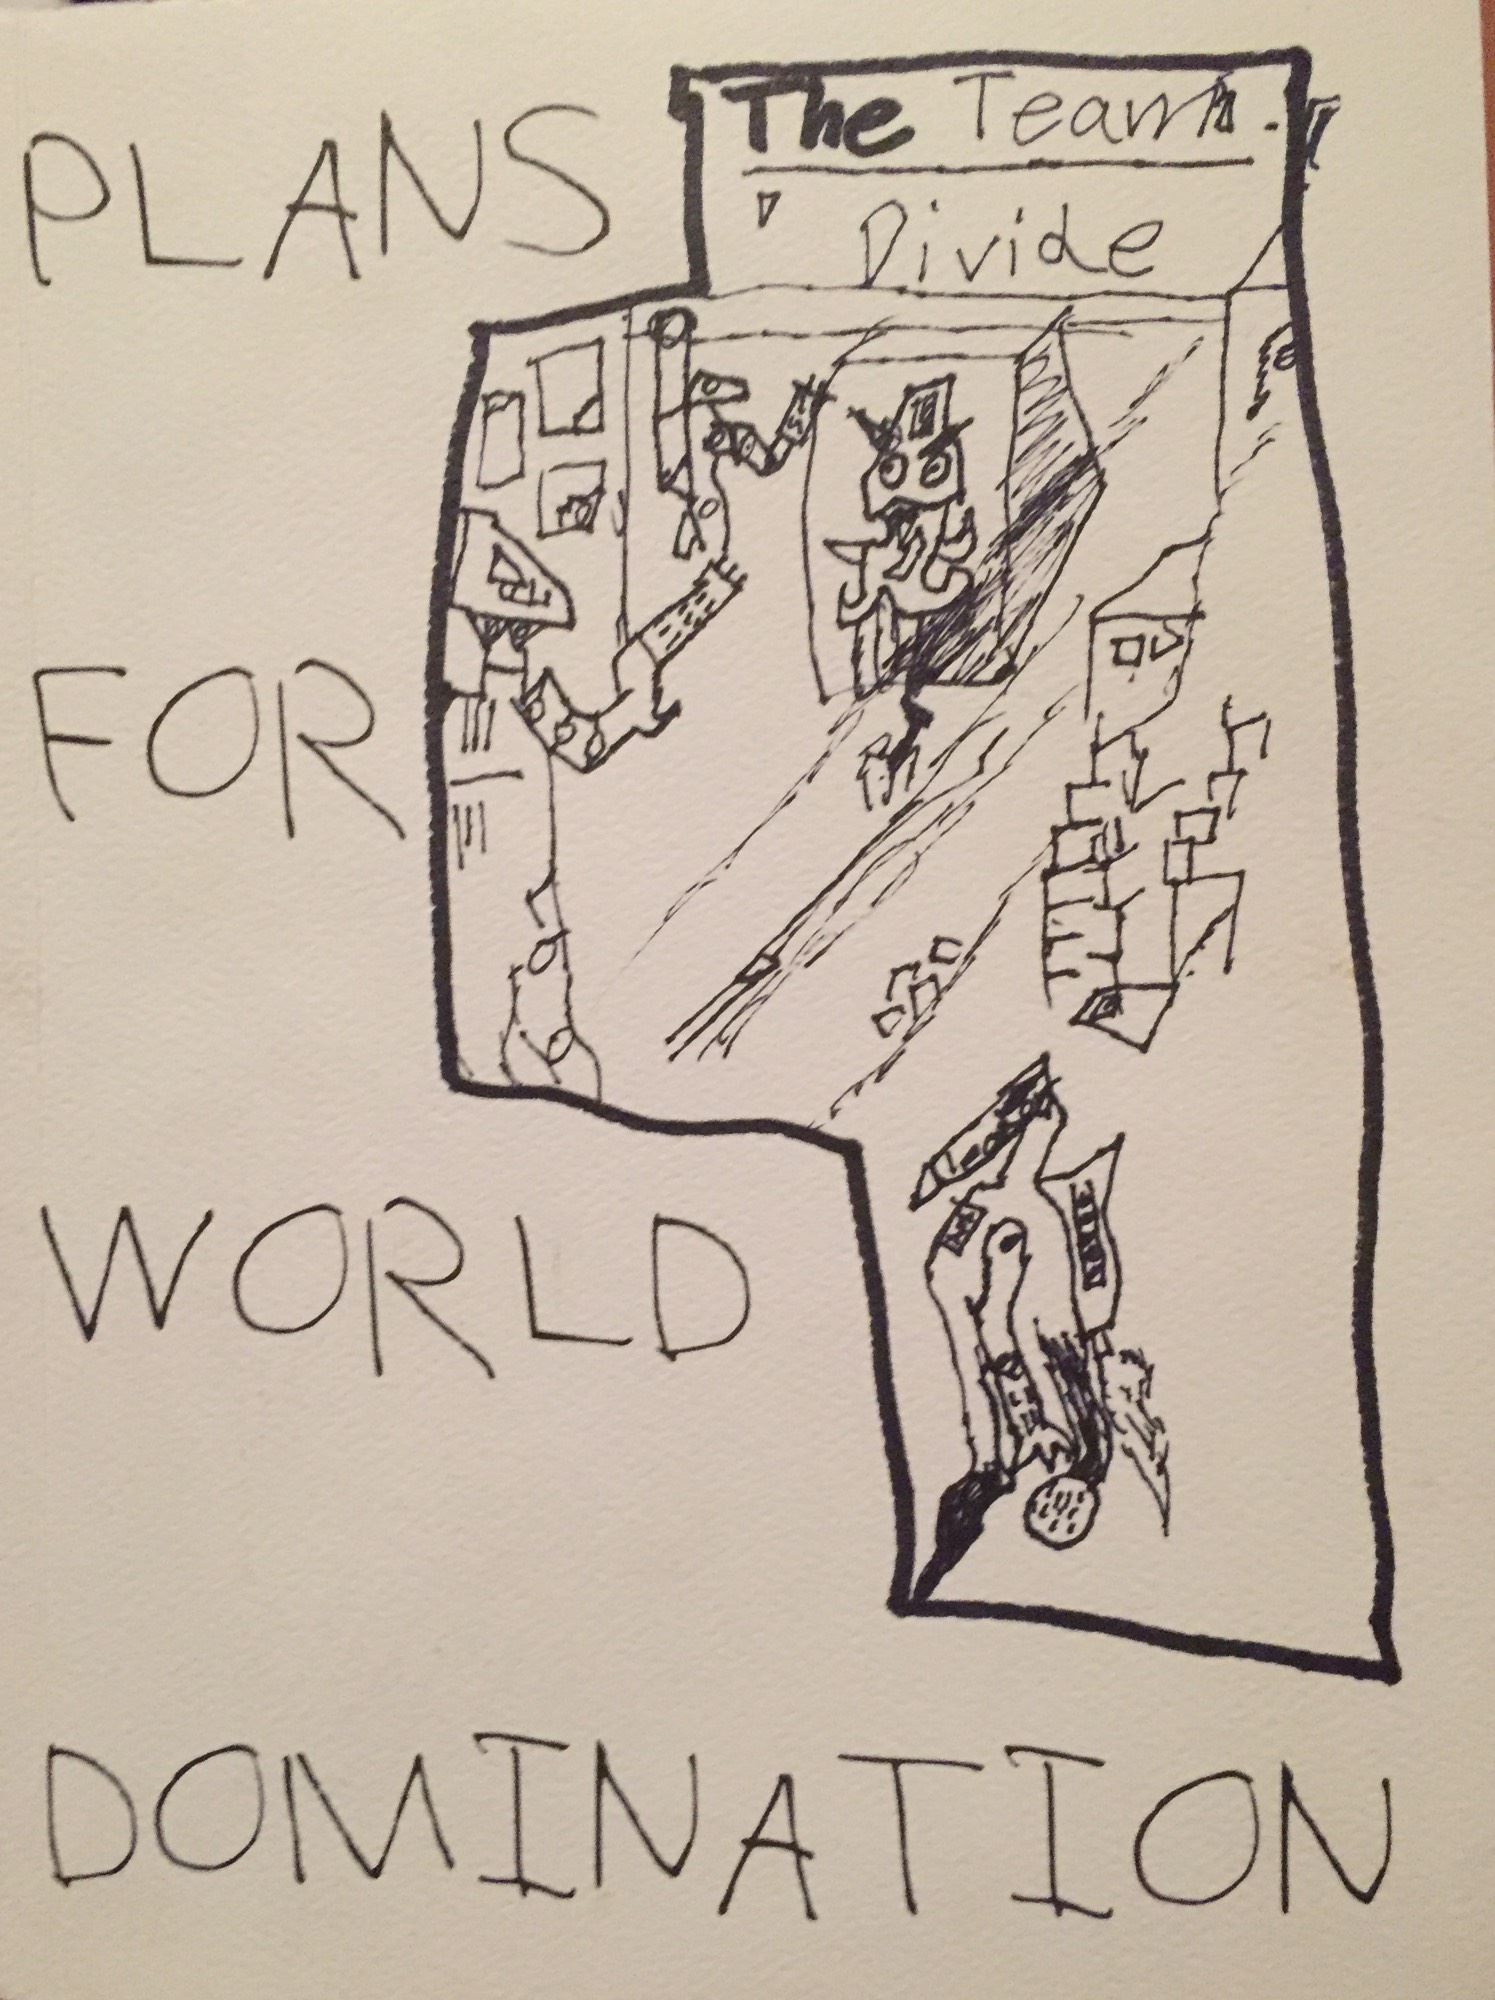 PLANS
The Team
Divide
FOR
WORLD
DOMINATION